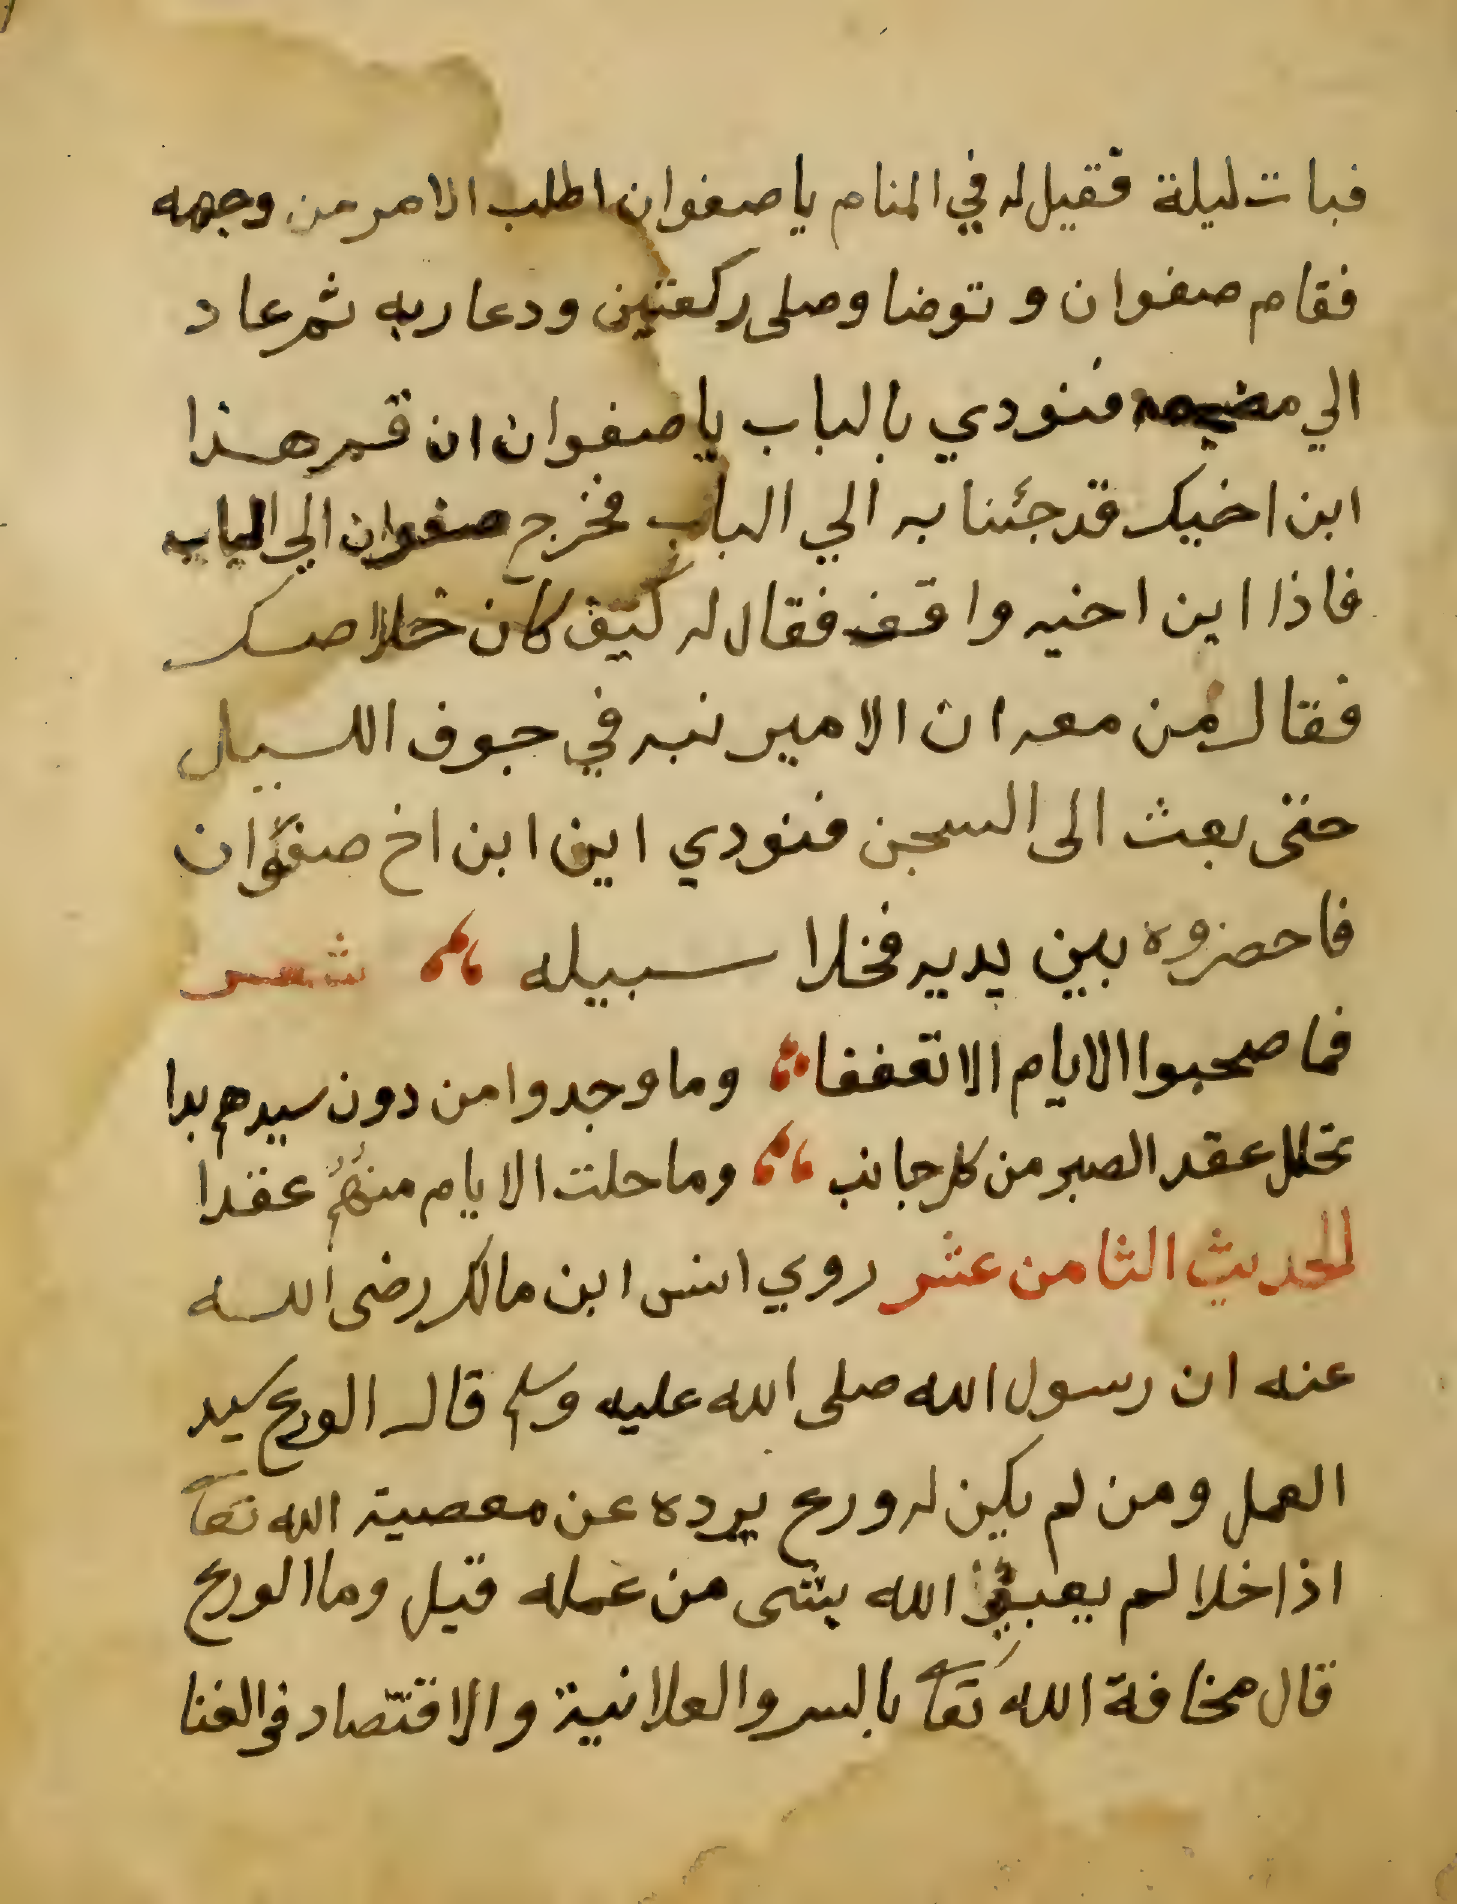 فبات ليلة فقيل له في المنام يا صفوان اطلب الامر من وجهه
فقام صفوان و توضا وصلى ركعتين ودعا ربه ثم عاد
الي مضجعه فنودي بالباب يا صفوان ان قم هذا
ابن اخيك قد جئنا به الي الباب فخرج صفوان الي الباب
فاذا ابن اخيه واقف فقال له كيف كان خلاصك
فقال من معه ان الامير نبه في جوف الليل
حتى بعث الى السجن فنودي اين ابن اخ صفوان
فاحضروه بين يديه فخلا سبيله شعر
فما صحبوا الايام الا تعففا وما وجدوا من دون سيدهم بدا
تحلل عقد الصبر من كل جانب وما حلت الايام منهُمُ عقدا
الحديث الثامن عشر روي انس ابن مالك رضى الله
عنه ان رسول الله صلى الله عليه وسلم قال الورع سيد
العمل ومن لم يكن له ورع يرده عن معصية الله تعا
اذا خلا لم يعبئ الله بشى من عمله قيل وما الورع
قال مخافة الله تعا بالسر والعلانية والاقتصاد في الغنا